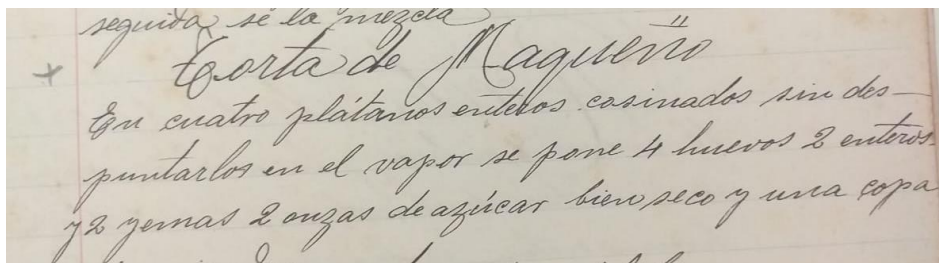 seguida se la mezcla
+ Torta de Maqueño
En cuatro plátanos enteros cosinados sin des-
puntarlos en el vapor se pone 4 huevos 2 enteros
y 2 yemas 2 onzas de azúcar bien seco y una copa